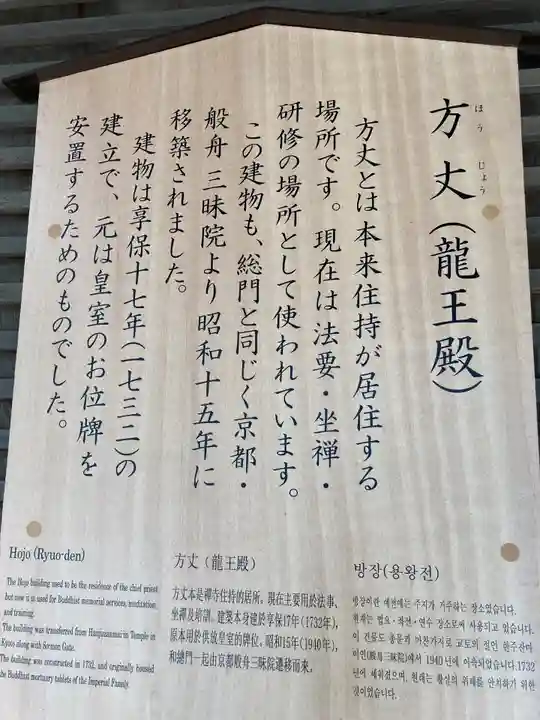 方丈(龍王殿)
ほう じょう
方丈とは本来住持が居住する
場所です。現在は法要・坐禅・
研修の場所として使われています。
この建物も、総門と同じく京都・
般舟三昧院より昭和十五年に
移築されました。
建物は享保十七年(一七三二)の
建立で、元は皇室のお位牌を
安置するためのものでした。
Hojo (Ryuo-den)
The Hojo building used to be the residence of the chief priest
but now it is used for Buddhist memorial services, meditation
and training.
The building was transferred from Hanjuzanmai-in Temple in
Kyoto along with Somon Gate.
The building was constructed in 1732, and originally housed
the Buddhist mortuary tablets of the Imperial Family.
方丈（龍王殿）
方丈本是禪寺住持的居所。現在主要用於法事、
坐禪及培訓。建築本身建於享保17年(1732年),
原本用於供放皇室的牌位。昭和15年(1940年),
和總門一起由京都般舟三昧院遷移而來。
방장(용왕전)
방장이란 예전에는 주지가 거주하는 장소였습니다.
현재는 법요・좌선・연수 장소로써 사용되고 있습니다.
이 건물도 총문과 마찬가지로 교토의 절인 한주잔마
이인(般舟三昧院)에서 1940년에 이축되었습니다.1732
년에 세워졌으며, 원래는 황실의 위패를 안치하기 위한
것이었습니다.